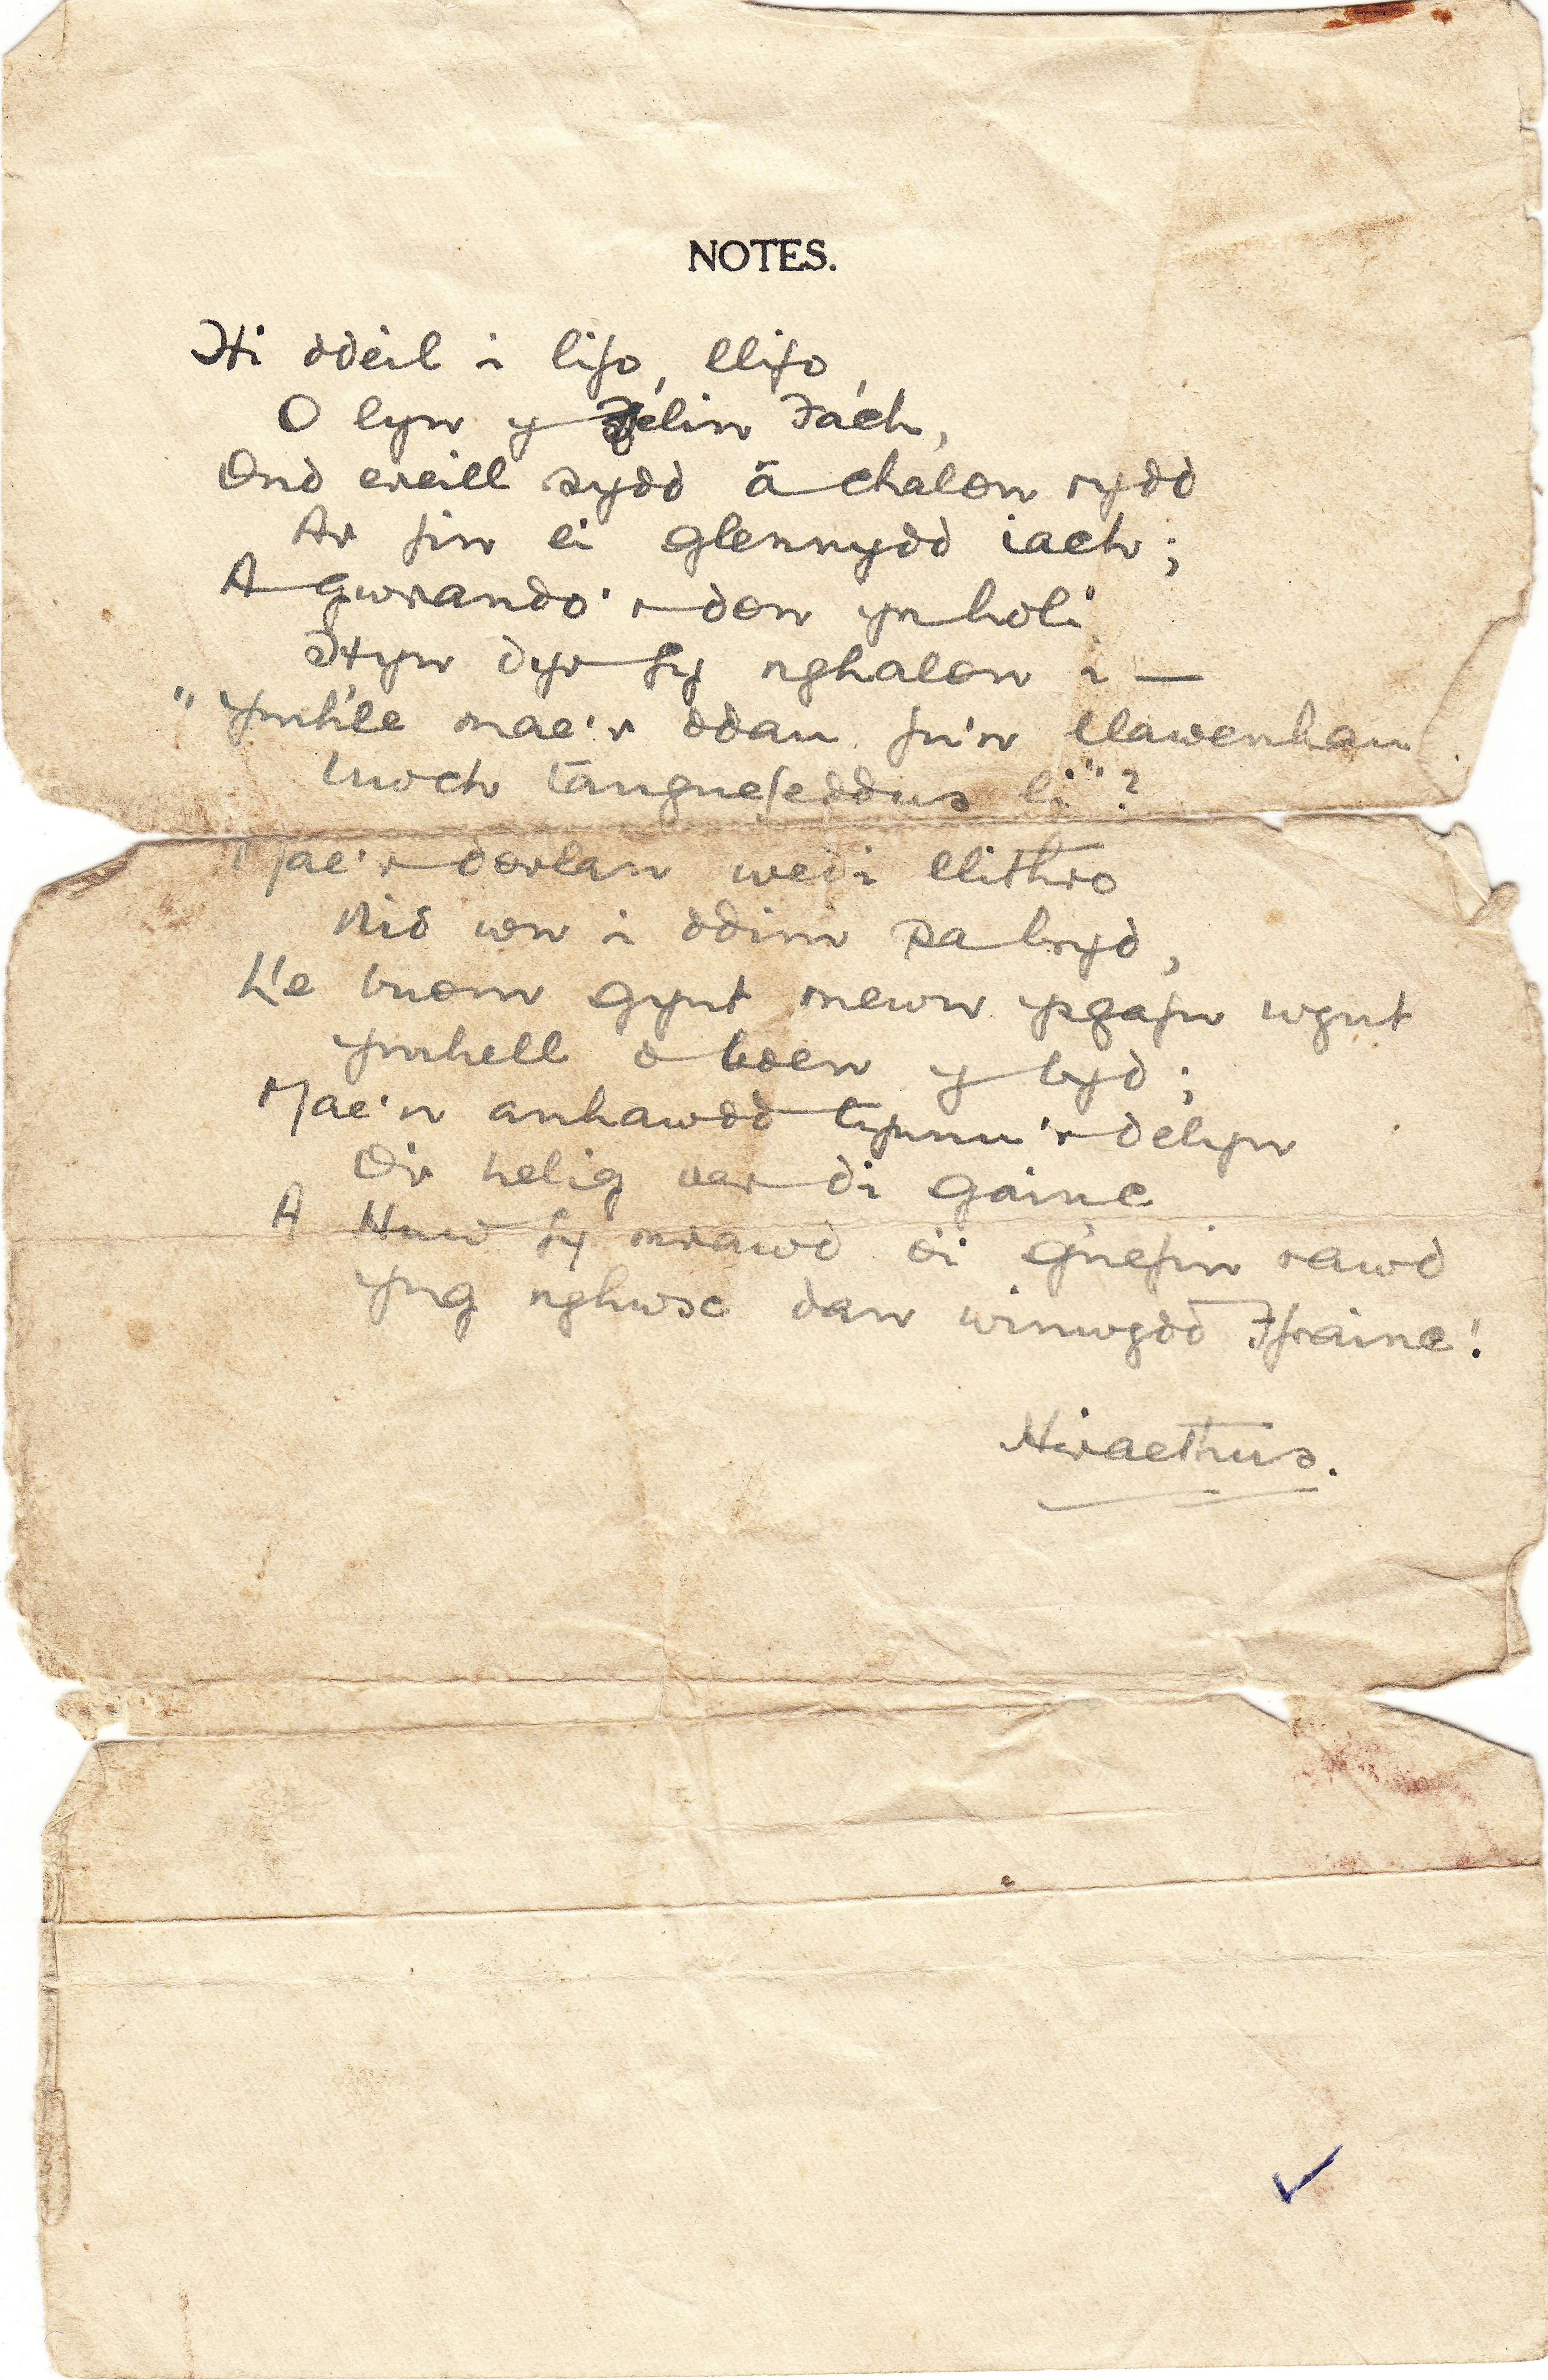 NOTES.
Hi ddeil i lifo, llifo,
O lyn y Felin Fach,
Ond ereill sydd â chalon rydd
Ar fin ei glennydd iach;
A gwrando'r don yn holi
Hyn dyr fy nghalon i —
"Ymh'le mae'r ddau fu'n llawenhau
Uwch tangnefeddus li"?
Mae'r dorlan wedi llithro
Nid wn i ddim pa bryd,
Lle buom gynt mewn ysgafn wynt
Ymhell o boen y byd;
Mae'n anhawdd tynnu'r delyn
O'r helig oer di gainc
A Huw fy mrawd o'i g'nefin rawd
Yng nghwsc dan winwydd Ffrainc!
Hiraethus.